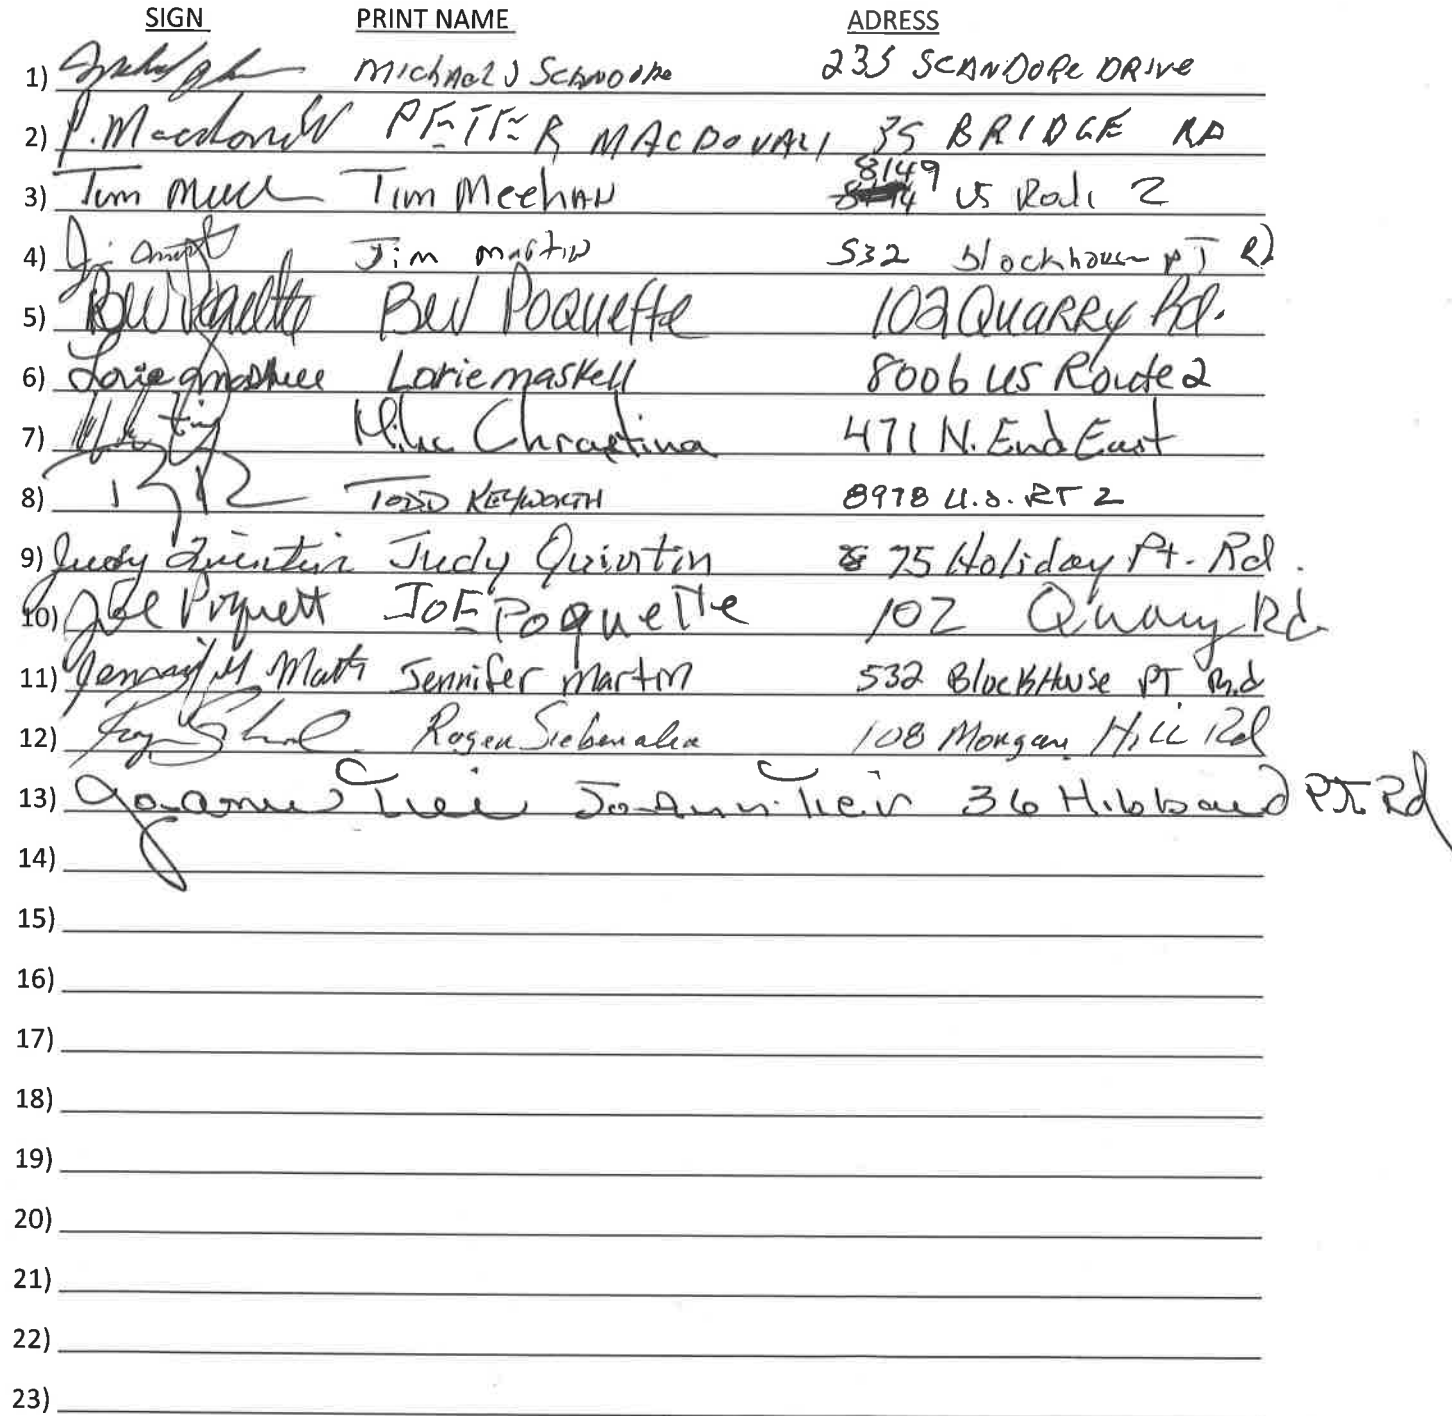 SIGN PRINT NAME ADRESS
1) Michael J 235 SCANDORE DRIVE
2) P. Macdonald PETER MACDONALD 35 BRIDGE RD
3) Tim Tim Meehan 8149 US 2
4) Jim Martin 532 blockhouse PT Rd
5) Bev Poquette Bev Poquette 102 Quarry Rd.
6) Lorie Maskell Lorie maskell 8006 US Route 2
7) Mike Chrastina 471 N. End East
8) TODD KEYWORTH 8978 U.S. RT 2
9) Judy Quintin Judy Quintin 75 Holiday Pt. Rd.
10) Joe Poquett JOE Poquette 102 Quarry Rd
11) Jennifer M Martin Jennifer Martin 532 BlockHouse PT Rd
12) Roger 108 Morgan Hill Rd
13) 36 Hibbard PT Rd
14)
15)
16)
17)
18)
19)
20)
21)
22)
23)